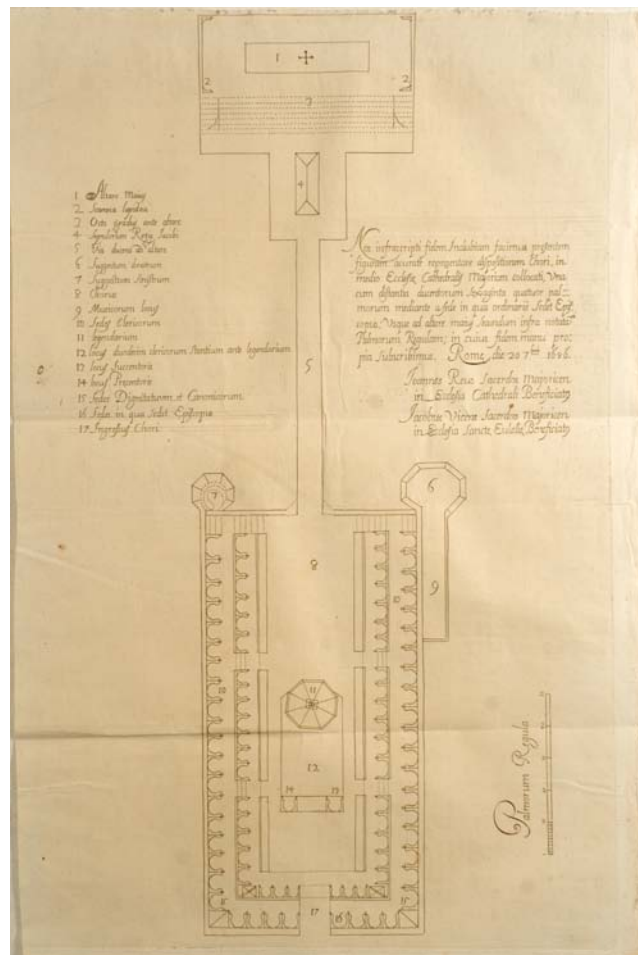 1 Altare Maius
2 Scamna lapidea
3 Octo gradus ante altare
4 Sepulcrum Regis Iacobi
5 Via ducens ad altare
6 Suggestum dextrum
7 Suggestum sinistrum
8 Chorus
9 Musicorum locus
10 Sedes Clericorum
11 legendarium
12 locus clericorum ante legendarium
13 locus Succentoris
14 locus Precentoris
15 Sedes Dignitatum et Canonicorum
16 Sedes in qua sedet Episcopus
17 Ingressus Chori
Nos infrascripti fidem Indubiam facimus presentem
figuram representare dispositionem Chori, in
medio Ecclesie Cathedralis Majoricen collocati, Vna
cum distantia sexaginta quatuor pal=
morum mediante a sede in qua ordinarie Sedet Epis
copus, Vsque ad altare maius secundum infra notatam
Palmorum Regulam; in cuius fidem manu pro=
pia subscribimus. Rome die 20 7bris 1696.
Joannes Reus Sacerdos Majoricen
in Ecclesia Cathedrali Beneficiatus
Jacobus Sacerdos Majoricen
in Ecclesia Sancte Eulalie Beneficiatus
1
2
2
3
4
5
6
7
8
9
10
10
11
12
14
13
15
15
16
17
Palmorum Regula